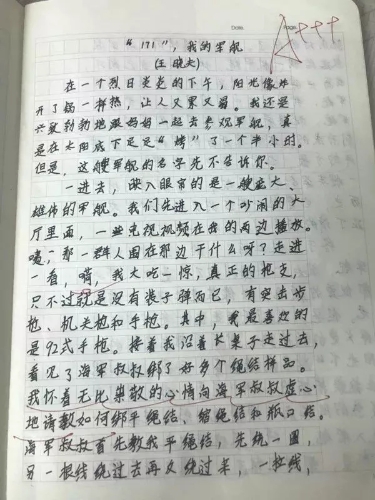 DATE.
PAGE.
A++++
“171”，我的军舰
(王晓夫)
在一个烈日炎炎的下午，阳光像炸
开了锅一样热，让人又累又闷。我还是
兴致勃勃地跟妈妈一起去参观军舰，真
是在太阳底下足足“烤”了一个半小时。
但是，这艘军舰的名字先不告诉你。
一进去，映入眼帘的是一艘庞大、
雄伟的军舰。我们先进入一个吵闹的大
厅里面，一些电视频在我的两边播放。
咦，那一群人围在那边干什么呀？走进
一看，嗬，我大吃一惊，真正的枪支，
只不过就是没有装子弹而已，有突击步
枪、机关枪和手枪。其中，我最喜欢的
是92式手枪。接着我沿着长桌子走过去，
看见了海军叔叔绑了好多个绳结样品。
我怀着无比崇敬的心情向海军叔叔虚心
地请教如何绑平绳结、缩绳结和瓶口结。
海军叔叔首先教我平绳结，先绕一圈，
另一根线绕过去再又绕过来，一拉线，